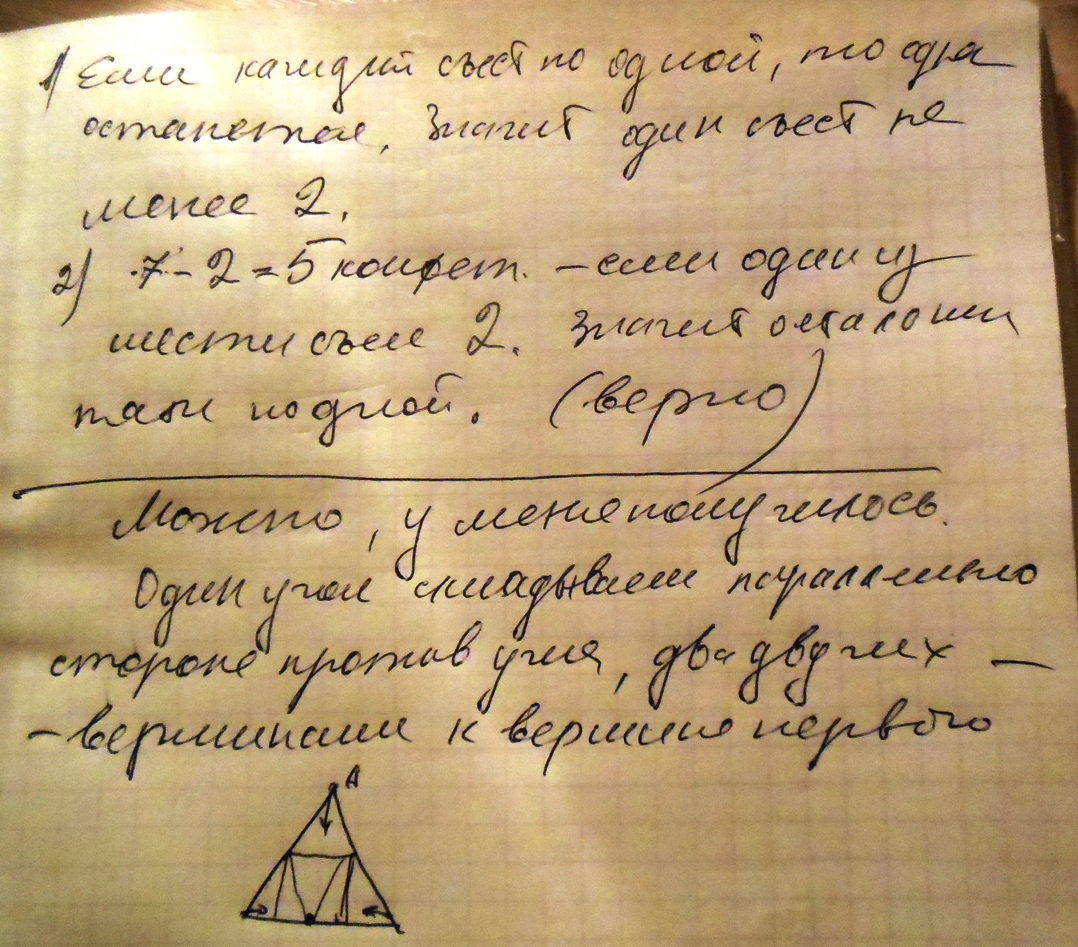 1) Если каждый съест по одной, то одна
останется, значит один съест не
менее 2.
2) 7 - 2 = 5 конфет. - если один из
шести съел 2. Значит остальные
по одной. (верно)
Можно, у меня получилось.
Один угол складываем параллельно
стороне против угла, два других -
- вершинами к вершине первого
A